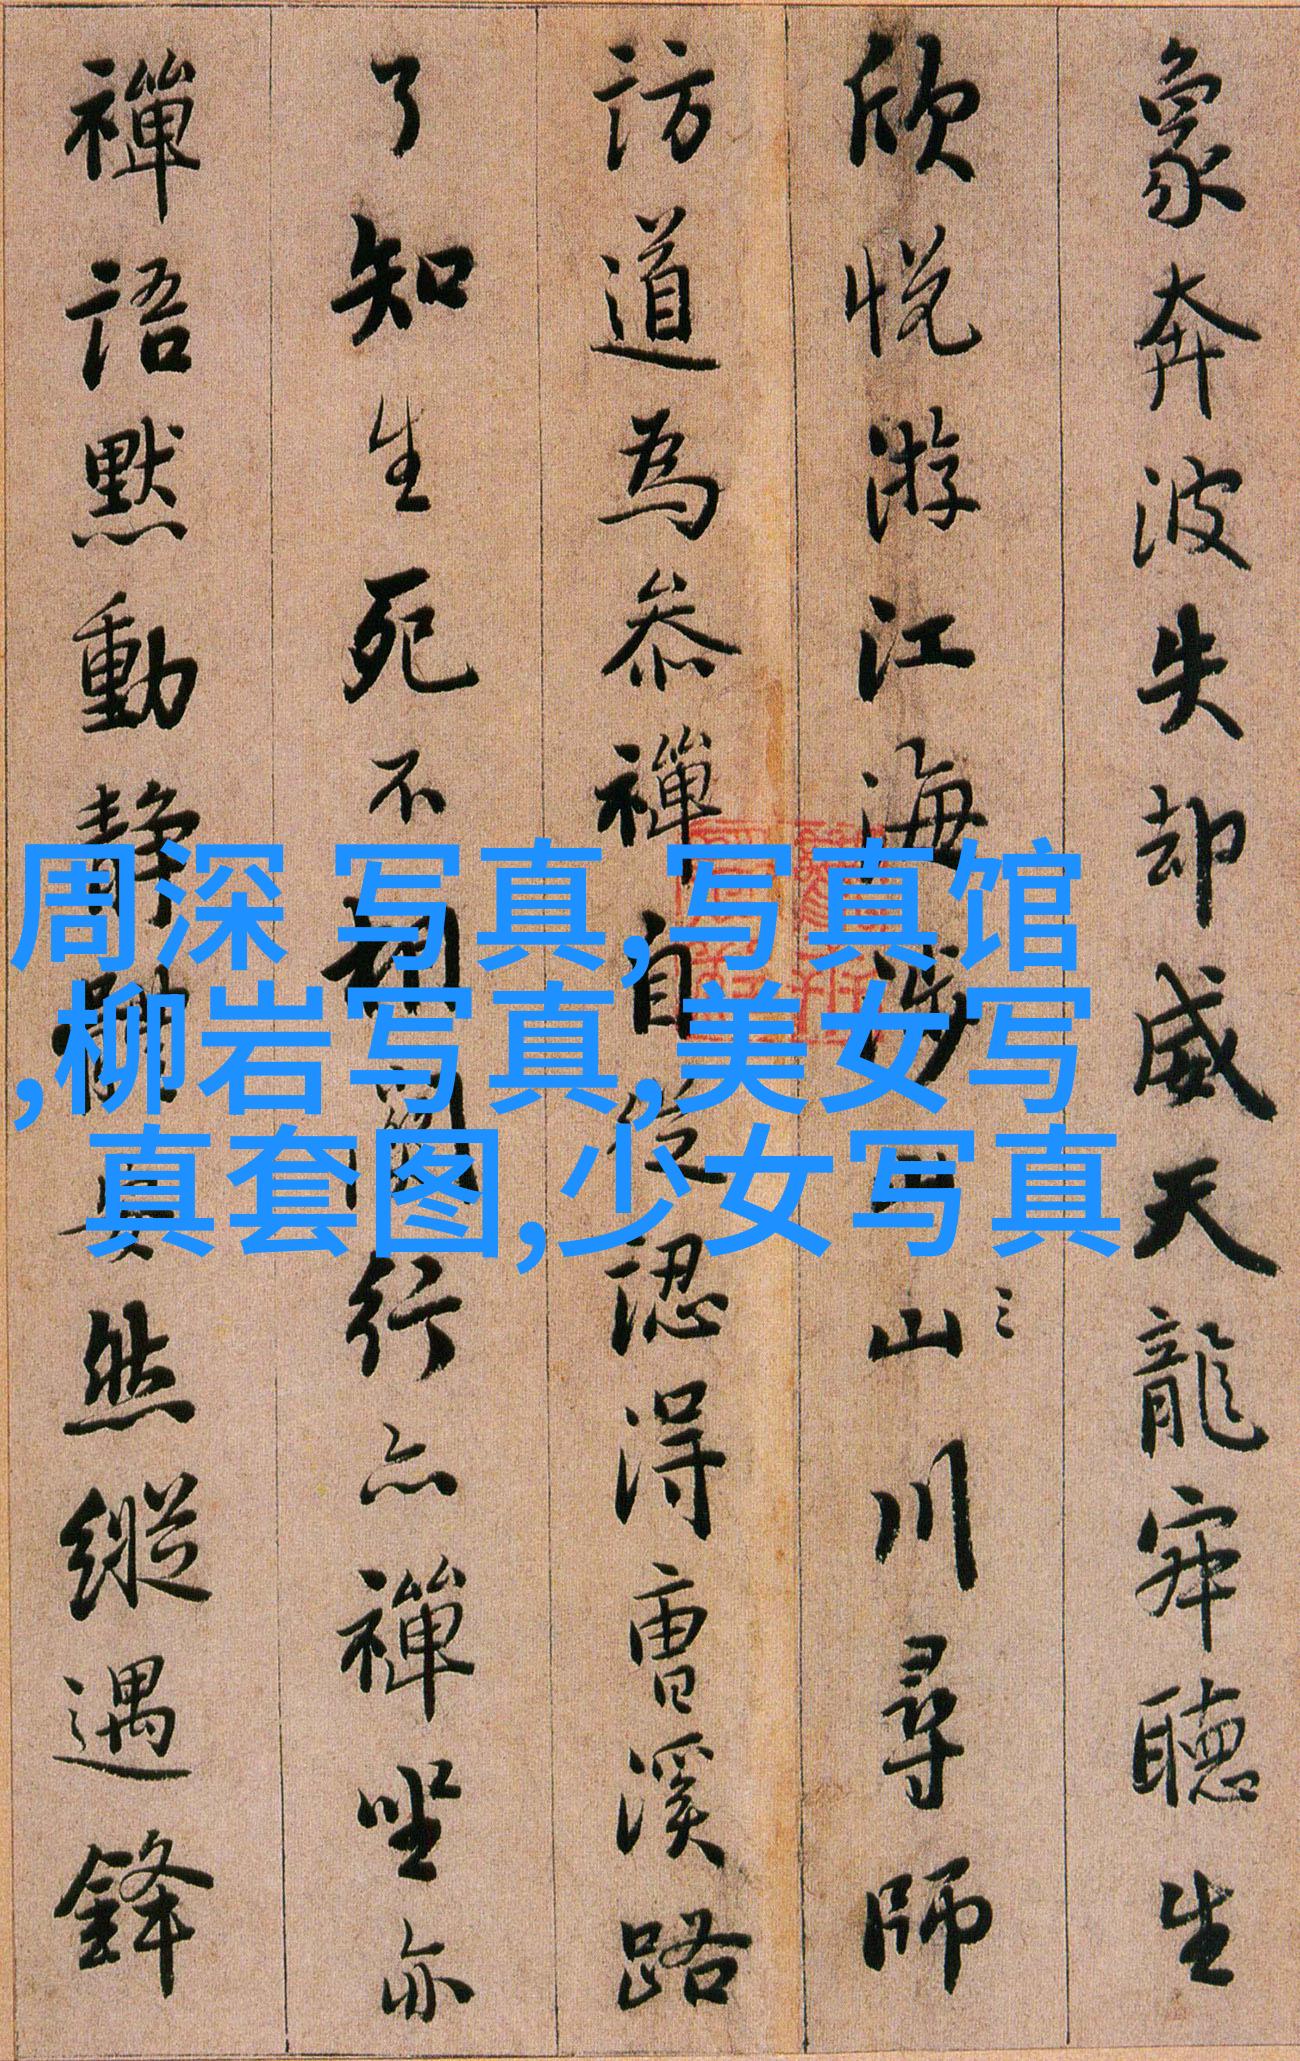 象奔波失却威天龍寂聽生
欣悅游江海涉山川尋師
訪道為參禪自從認得曹溪路
了知生死不相關行亦禪坐亦
禪語默動靜體安然縱遇鋒
周深 写真,写真馆
,柳岩写真,美女写
真套图,少女写真